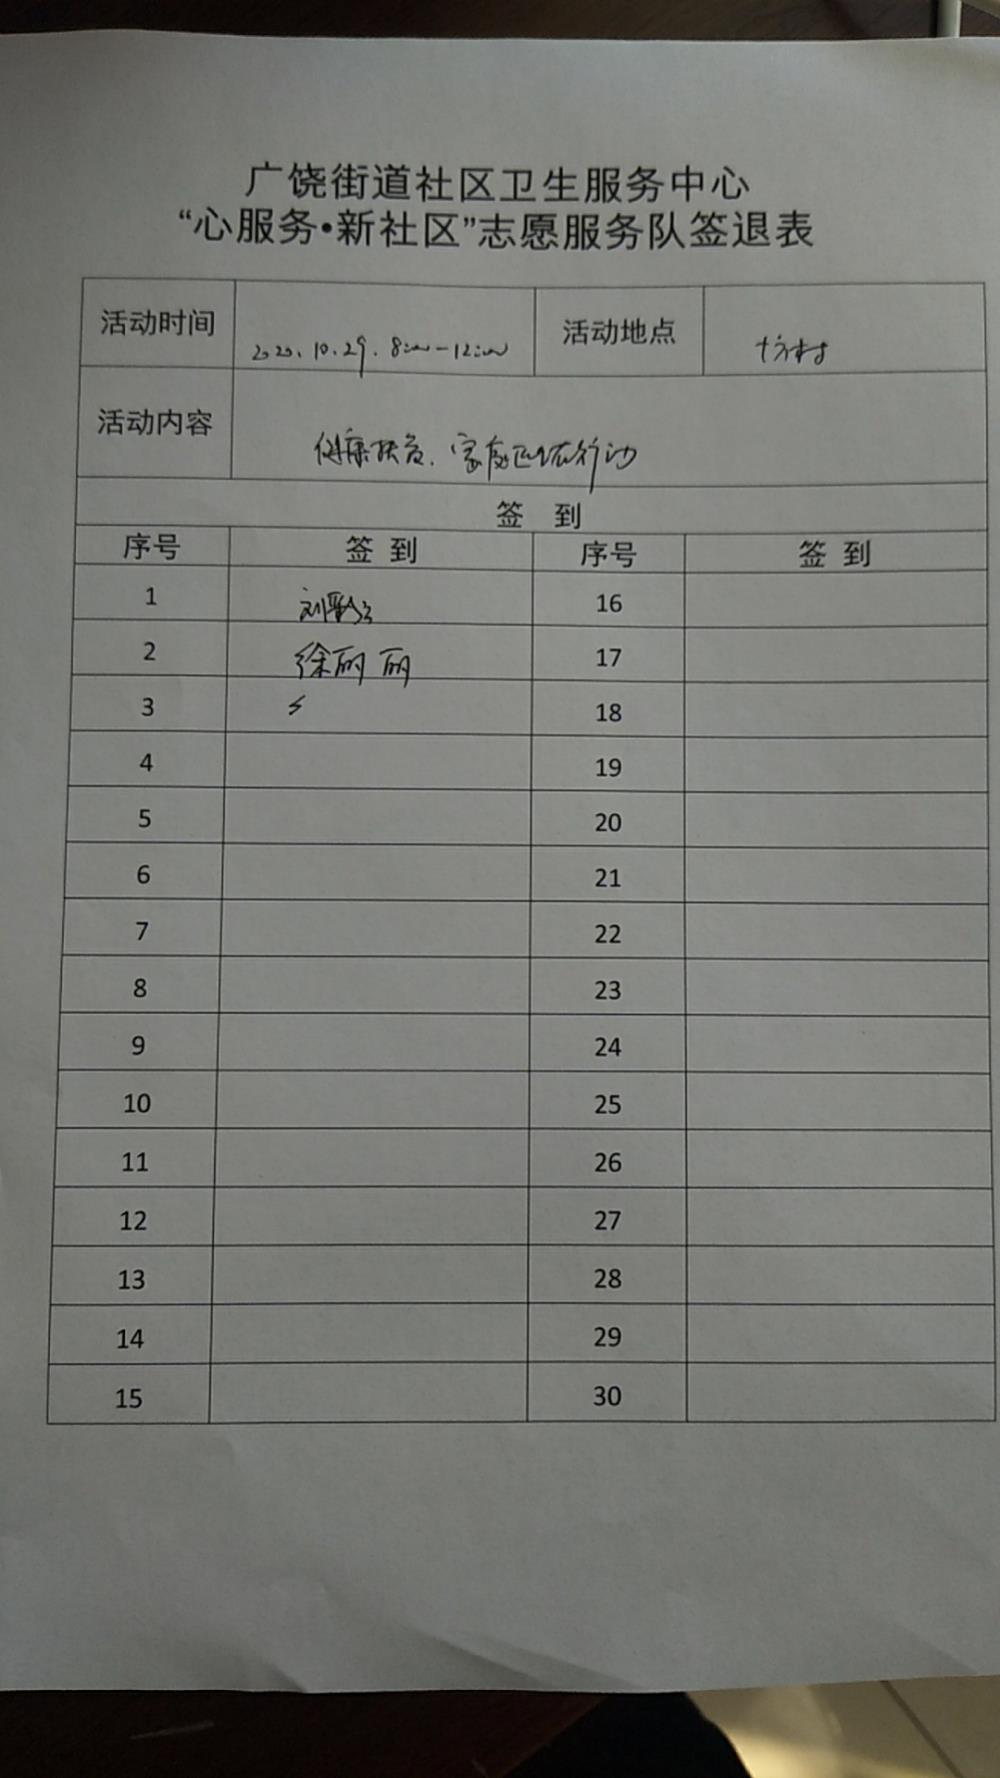 广饶街道社区卫生服务中心
“心服务•新社区”志愿服务队签退表
活动时间 2020.10.29.8:00-12:00 活动地点 坊村
活动内容 健康扶贫、家庭医生在行动
签 到
序号 签 到 序号 签 到
1 刘 16
2 徐丽丽 17
3 18
4 19
5 20
6 21
7 22
8 23
9 24
10 25
11 26
12 27
13 28
14 29
15 30